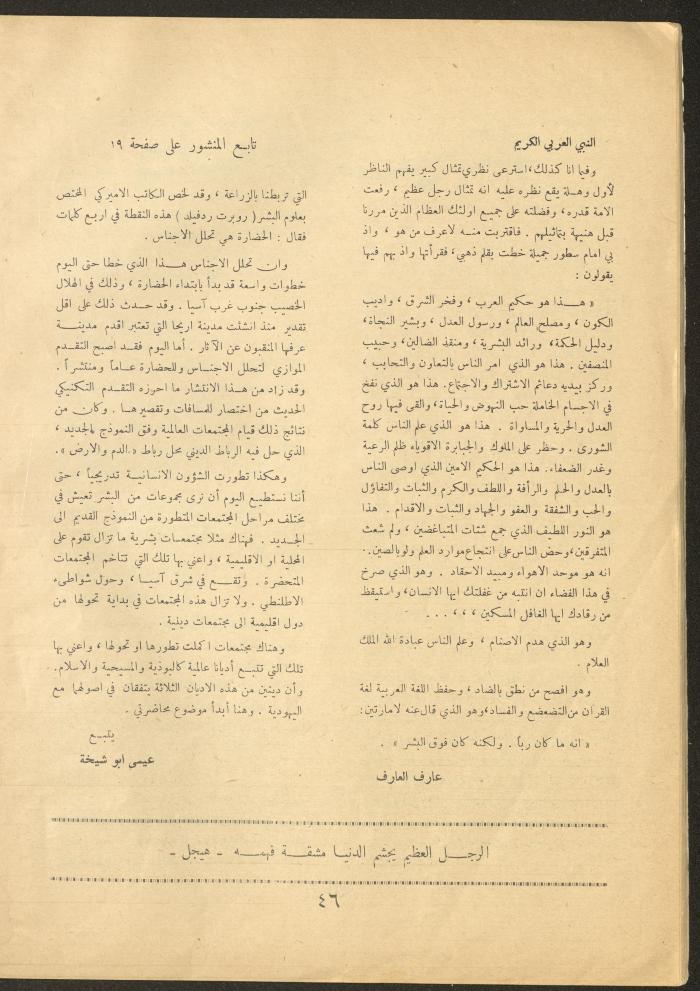 النبي العربي الكريم
وفيا انا كذلك، استرعى نظري تمثال كبير يفهم الناظر
لأول وهلة يقع نظره عليه انه تمثال رجل عظيم ، رفعت
الامة قدره، وفضلته على جميع اولئك العظام الذين مررنا
قبل هنيهة بتماثيلهم . فاقتربت منه لاعرف من هو ، واذ
بي امام سطور جميلة خطت بقلم ذهبي، فقرأتها واذ بهم فيها
يقولون :
« هذا هو حكيم العرب ، وفخر الشرق ، واديب
الكون ، ومصلح العالم ، ورسول العدل ، وبشير النجاة،
ودليل الحكمة، ورائد البشرية ، ومنقذ الضالين، وحبيب
المنصفين . هذا هو الذي امر الناس بالتعاون والتحابب ،
وركز بيديه دعائم الاشتراك والاجتماع. هذا هو الذي نفخ
في الاجسام الخاملة حب النهوض والحياة، والقى فيها روح
العدل والحرية والمساواة . هذا هو الذي علم الناس كلمة
الشورى . وحظر على الملوك والجبابرة الاقوياء ظلم الرعية
وغدر الضعفاء. هذا هو الحكيم الامين الذي اوصى الناس
بالعدل والحلم والرأفة واللطف والكرم والثبات والتفاؤل
والحب والشفقة والعفو والجهاد والثبات والاقدام . هذا
هو النور اللطيف الذي جمع شتات المتباغضين ، ولم شعث
المتفرقين، وحض الناس على انتجاع موارد العلم ولو بالصين.
انه هو موحد الاهواء ومبيد الاحقاد . وهو الذي صرخ
في هذا الفضاء ان انتبه من غفلتك ايها الانسان، واستيقظ
من رقادك ايها الغافل المسكين ، ، ، . . .
وهو الذي هدم الاصنام ، وعلم الناس عبادة الله الملك
العلام .
وهو افصح من نطق بالضاد ، وحفظ اللغة العربية لغة
القرآن من التضعضع والفساد، وهو الذي قال عنه لامارتين:
« انه ما كان رباً . ولكنه كان فوق البشر » .
عارف العارف
تابع المنشور على صفحة ١٩
التي تربطنا بالزراعة ، وقد لخص الكاتب الاميركي المختص
بعلوم البشر ( روبرت ردفيلد ) هذه النقطة في اربع كلمات
فقال : الحضارة هي تحلل الاجناس .
وان تحلل الاجناس هذا الذي خطا حتى اليوم
خطوات واسعة قد بدأ بابتداء الحضارة ، وذلك في الهلال
الخصيب جنوب غرب آسيا . وقد حدث ذلك على اقل
تقدير منذ انشئت مدينة اريحا التي تعتبر اقدم مدينة
عرفها المنقبون عن الآثار . أما اليوم فقد اصبح التقدم
الموازي لتحلل الاجناس وللحضارة عاماً ومنتشراً .
وقد زاد من هذا الانتشار ما احرزه التقدم التكنيكي
الحديث من اختصار للمسافات وتقصيرها . وكان من
نتائج ذلك قيام المجتمعات العالمية وفق النموذج الجديد ،
الذي حل فيه الرباط الديني محل رباط « الدم والارض ».
وهكذا تطورت الشؤون الانسانية تدريجياً ، حتى
أننا نستطيع اليوم أن نرى مجموعات من البشر تعيش في
مختلف مراحل المجتمعات المتطورة من النموذج القديم الى
الجديد . فهناك مثلا مجتمعات بشرية ما تزال تقوم على
المحلية او الاقليمية ، واعني بها تلك التي تتاخم المجتمعات
المتحضرة . وتقع في شرق آسيا ، وحول شواطىء
الاطلنطي . ولا تزال هذه المجتمعات في بداية تحولها من
دول اقليمية الى مجتمعات دينية .
وهناك مجتمعات اكملت تطورها او تحولها ، واعني بها
تلك التي تتبع أديانا عالمية كالبوذية والمسيحية والاسلام.
وأن دينين من هذه الاديان الثلاثة يتفقان في اصولهما مع
اليهودية . وهنا أبدأ موضوع محاضرتي .
يتبع
عيسى ابو شيخة
الرجل العظيم يجشم الدنيا مشقة فهمه - هيجل -
٤٦